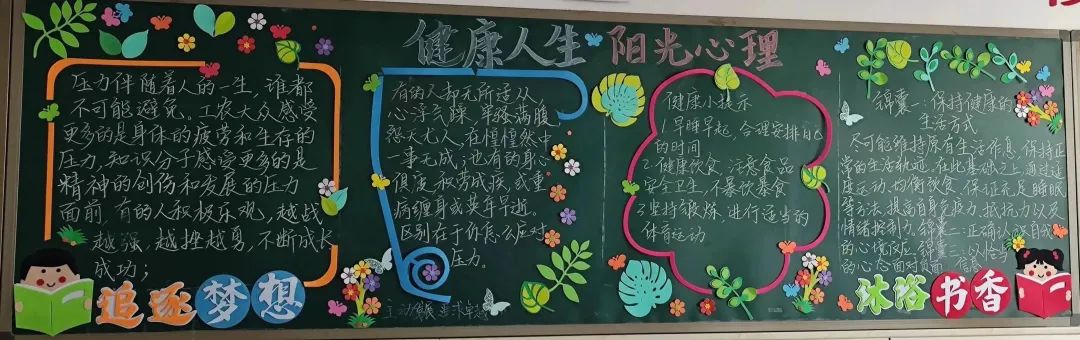 健康人生 阳光心理
压力伴随着人的一生，谁都
不可能避免。工农大众感受
更多的是身体的疲劳和生存的
压力，知识分子感受更多的是
精神的创伤和发展的压力
面前，有的人积极乐观，越战
越强，越挫越勇，不断成长
成功；
追逐梦想
有的人却无所适从
心浮气躁，牢骚满腹
怨天尤人，在惶惶然中
一事无成；也有的身心
俱疲积劳成疾，或重
病缠身或英年早逝。
区别在于你怎么应对
压力。
健康小提示
1.早睡早起，合理安排自己
的时间
2.健康饮食，注意食品
安全卫生，不暴饮暴食
3.坚持锻炼，进行适当的
体育运动
锦囊一：保持健康的
生活方式
尽可能维持原有生活作息，保持正
常的生活轨迹。在此基础之上，通过适
度运动，均衡饮食，保证充足睡眠
等方法，提高自身免疫力、抵抗力以及
情绪控制力。锦囊二：正确认识自我
的心境反应。锦囊三：以恰当
的心态面对负面信息
沐浴书香